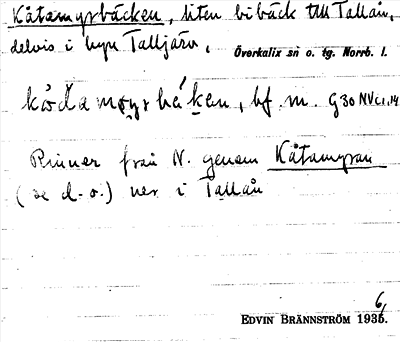 Kåtamyrbäcken, liten bibäck till Tallån,
delvis i byn Talljärv.
Överkalix sn o. tg. Norrb. l.
bf. m. G30 NV
Rinner från N. genom Kåtamyran
(se d. o.) ner i Tallån
EDVIN BRÄNNSTRÖM 1936.